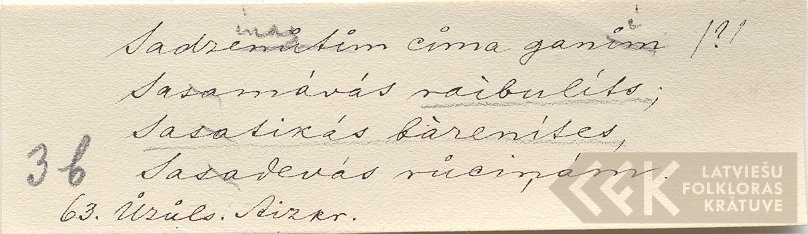 Sadzenůtim cima ganim /?/
Sasamávás raibulíts;
Sasatikás bàrenítes,
Sasadevás růciņám.
3 b
63. Ůzůls. Aizkr.
LATVIEŠU
FOLKLORAS
KRĀTUVE